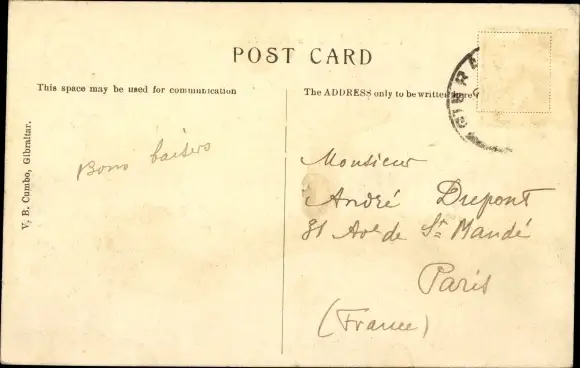 POST CARD
This space may be used for communication
The ADDRESS only to be written here
GIBRA
V. B. Cumbo, Gibraltar.
Bons baisers
Monsieur
André Dupont
81 Av. de St. Mandé
Paris
(France)